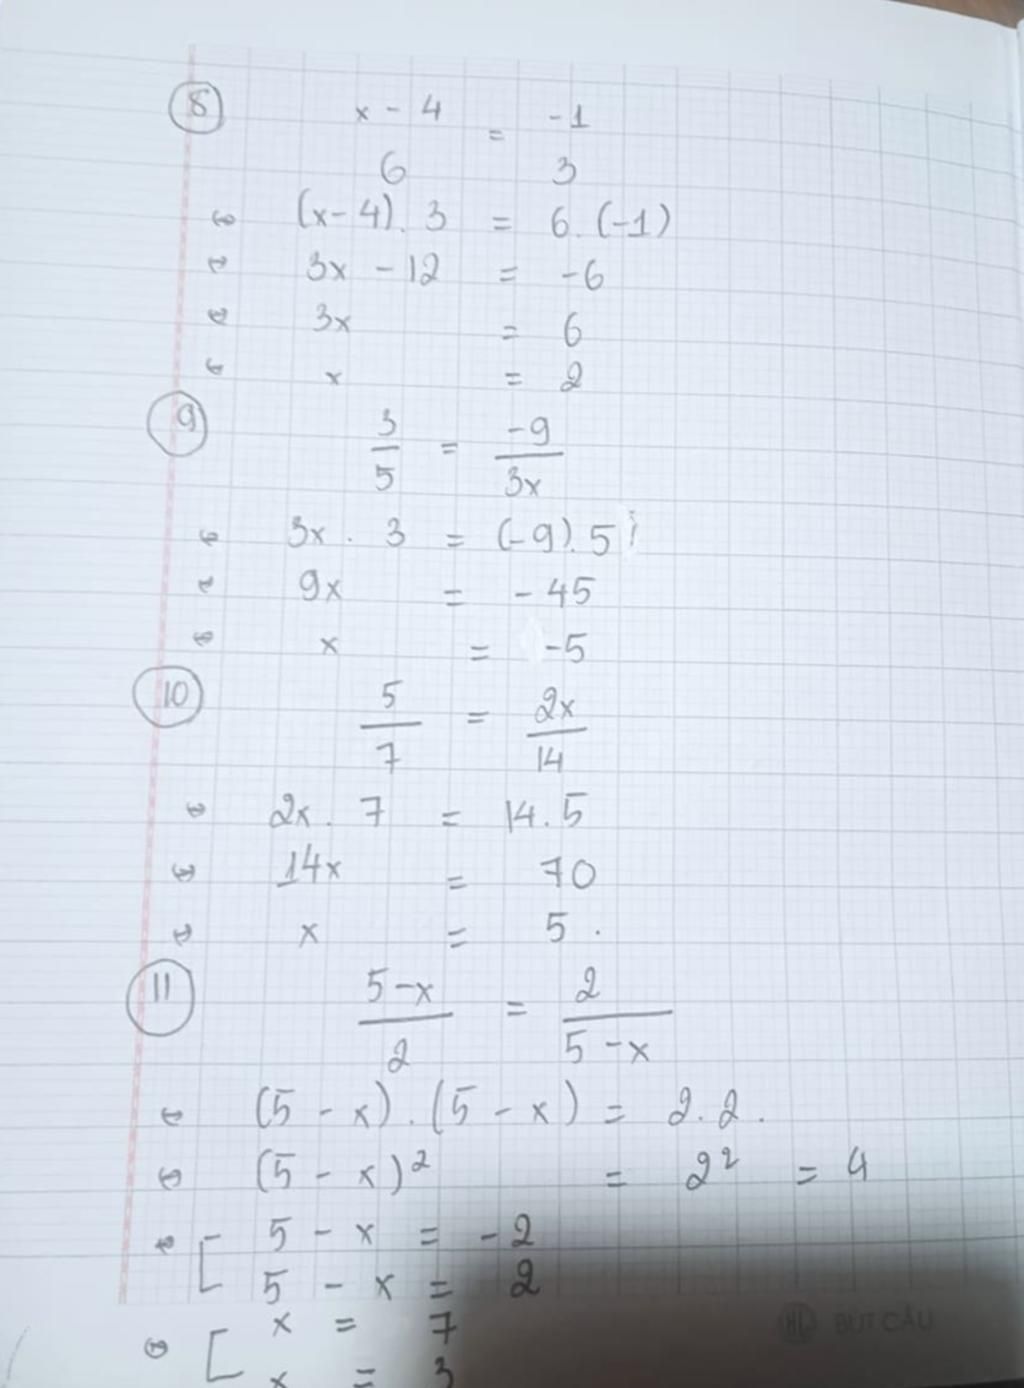 8
x - 4 = -1
6 3
⇔ (x-4).3 = 6.(-1)
⇔ 3x - 12 = -6
⇔ 3x = 6
⇔ x = 2
9
3/5 = -9/3x
⇔ 3x . 3 = (-9).5
⇔ 9x = -45
⇔ x = -5
10
5/7 = 2x/14
⇔ 2x . 7 = 14.5
⇔ 14x = 70
⇔ x = 5.
11
5-x/2 = 2/5-x
⇔ (5 - x).(5 - x) = 2.2.
⇔ (5 - x)² = 2² = 4
⇔ [ 5 - x = -2
5 - x = 2
⇔ [ x = 7
x = 3
BÚT CÂU